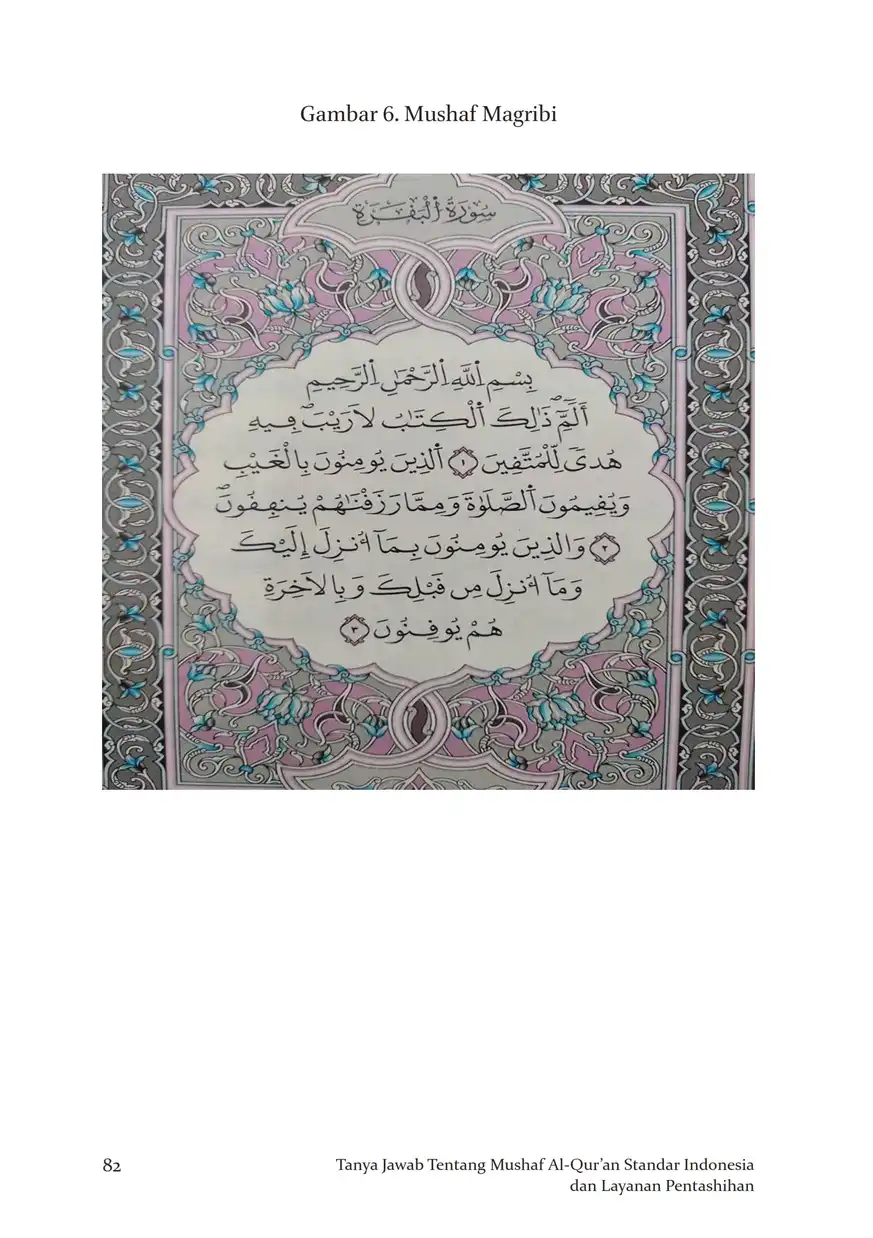 Gambar 6. Mushaf Magribi
سُورَةُ اُ۬لْبَفَرَةِ
بِسْمِ اِ۬للَّهِ اِ۬لرَّحْمَٰنِ اِ۬لرَّحِيمِ
أَلَٓمِّٓۖ ذَٰلِكَ اَ۬لْكِتَٰبُ لَا رَيْبَۖ فِيهِ
هُدىٗ لِّلْمُتَّفِينَ ١ اَ۬لذِينَ يُومِنُونَ بِالْغَيْبِ
وَيُفِيمُونَ اَ۬لصَّلَوٰةَ وَمِمَّا رَزَفْنَٰهُمْ يُنفِفُونَۖ
٢ وَالذِينَ يُومِنُونَ بِمَآ أُنزِلَ إِلَيْكَ
وَمَآ أُنزِلَ مِن فَبْلِكَ وَبِالَاخِرَةِ
هُمْ يُوفِنُونَ ٣
82
Tanya Jawab Tentang Mushaf Al-Qur’an Standar Indonesia
dan Layanan Pentashihan